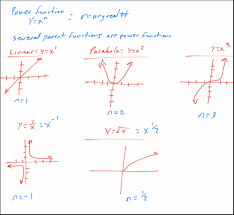 Power function
y=xⁿ : n=any real #
several parent functions are power functions
Linear: y=x¹ Parabola: y=x² y=x³
n=1 n=2 n=3
y=1/x = x⁻¹ y=√x = x^1/2
n=-1 n=1/2